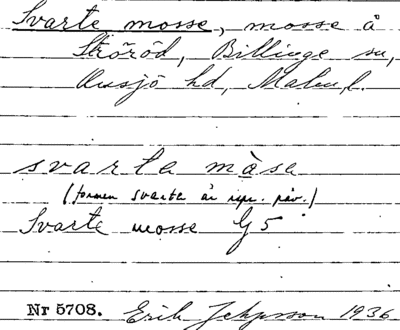 Svarte mosse, mosse å
Ströröd, Billinge sn,
Onsjö hd, Malm. l.
svarta måsa
(formen svarta är repr. päv.)
Svarte mosse G5
Nr 5708. Erik Jeppsson 1936